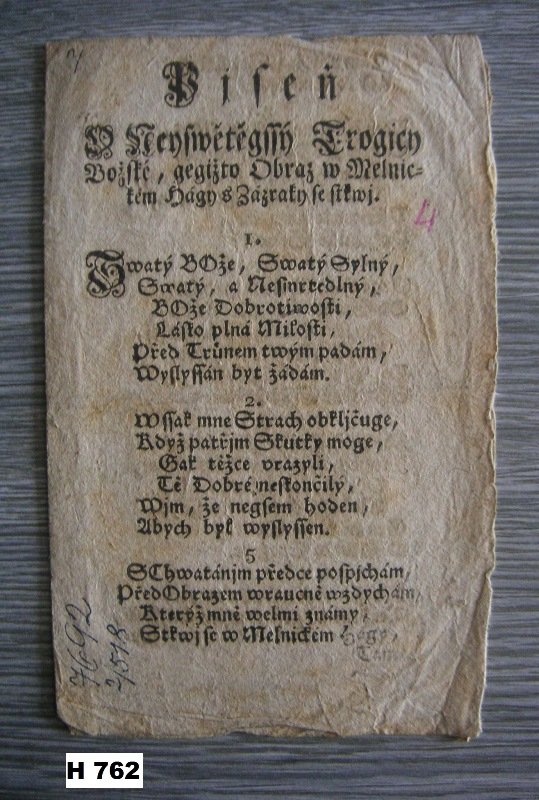 Pjseň
O Neyswětěgssý Trogicy
Božské, gegižto Obraz w Melnic-
kém Hágy s Zázraky se stkwj.
4
1.
Swatý BOže, Swatý Sylný,
Swatý, a Nesmrtedlný,
BOže Dobrotiwosti,
Lásko plná Milosti,
Před Trůnem twým padám,
Wyslyssán byt žádám.
2.
Wssak mne Strach obkljčuge,
Když patřjm Skutky moge,
Gak těžce vrazyli,
Tě Dobré neskončilý,
Wjm, že negsem hoden,
Abych byl wyslyssen.
5
SChwatánjm předce pospjchám,
Před Obrazem wraucně wzdychám,
Kterýž mně welmi známy,
Stkwj se w Melnickém Hegy,
7692
H 762